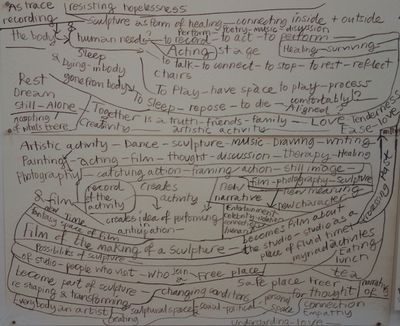 As trace resisting hopelessness
recording sculpture as form of healing - connecting inside + outside
perform - poetry - music - discussion
the body human need? to record - to act - to perform
Acting stage Healing - surviving
Sleep to talk - to connect - to stop - to rest - reflect
& Dying - in body chairs
gone from body To Play - have space to play - process
Rest To Sleep - repose - to die - comfortably!?
Dream Aligned
Still - Alone Together is a truth - friends - family - Love Tenderness
accepting! Creativity artistic activity Ease - love
of what's there
Artistic activity - Dance - sculpture - music - Drawing - writing
Painting - acting - film - thought - discussion - therapy - Healing
Photography - catching action - framing - action - still image
record of the activity creates activity new narrative film - photography - sculpture
& Film new meaning
new character
new time creates idea of performing
fantasy space of film anticipation
Entertainment
becomes film about
Film of the making of a sculpture
the studio - the studio as a
place of fluid time
Possibilities of sculpture
myriad activities
of studio - people who visit - who join - Free place Eating
lunch
become part of sculpture tea
Safe place tree
re shaping & transforming changing conditions for thought narratives of
Everybody an artist sculptural space social - political - personal space connection
Empathy
Creating Understanding - love